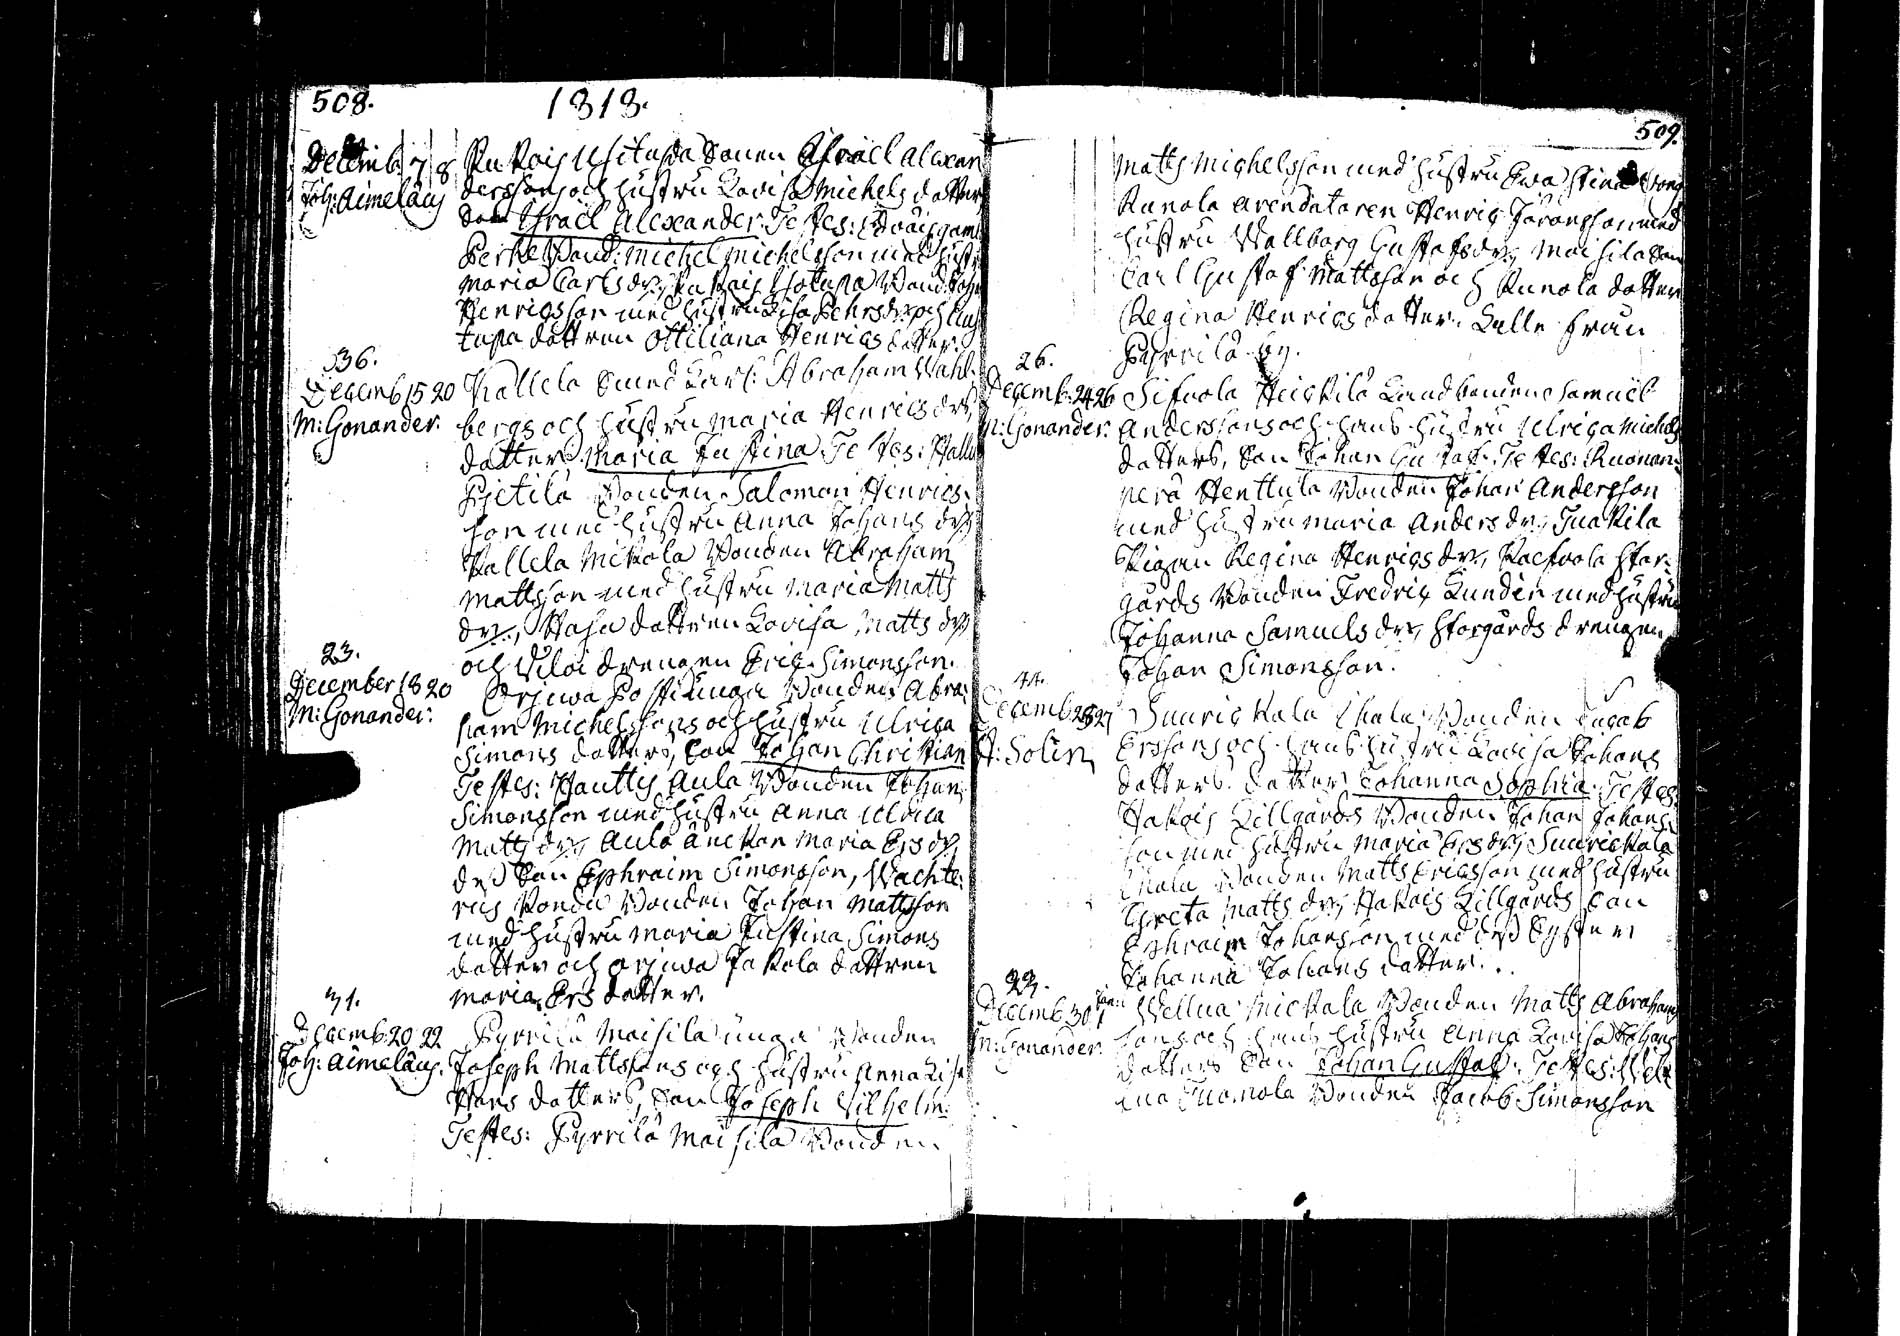 508.
1818.
Decemb. 7 8
Joh: Aimelæus
Sonen Israel Alexan
derssons och hustru Lovisa Michels dotters
Son Israel Alexander. Testes:
Bond: Michel Michelsson med hustr
Maria Carls dr, Bond. Joh
Henricsson med hustru Lisa Pehrs dr och
tupa dottren Ottiliana Henrics dotter.
36.
Decemb. 15 20
M: Gonander.
Kallela Smed Karl: Abraham Wahl-
bergs och hustru Maria Henrics drs
dotter Maria Justina. Testes:
Pietilä Bonden Salomon Henrics-
son med hustru Anna Johans dr,
Kallela Mickola Bonden Abraham
Mattsson med hustru Maria Matts
dr, dottren Lovisa Matts dr,
och drengen Eric Simonsson.
23.
December 18 20
M: Gonander:
Orjwa Bonden Abra-
ham Michelssons och hustru Ulrica
Simons dotters, Son Johan Christian
Testes: Aula Bonden Johan
Simonsson med hustru Anna Ulrica
Matts dr, Aula Änckan Maria Ers dr,
deß Son Ephraim Simonsson,
Bonden Johan Mattsson
med hustru Maria Justina Simons
dotter och Orjwa Jakola dottren
Maria Ers dotter.
31.
Decemb. 20 22
Joh: Aimelæus.
Pyrrilä Maisila unga Bonden
Joseph Mattssons och hustru Anna Lisa
Hans dotters, Son Joseph Vilhelm.
Testes: Pyrrilä Maisila Bonden
509.
Matts Michelsson med hustru Ewa Stina
Runola Arendatoren Henric Jöransson med
hustru Wallborg Gustafs dr, Maisila Son
Carl Gustaf Mattsson och Runola dotter
Regina Henrics dotter. Alle från
Pyrrilä by.
26.
Decemb. 24 26
M: Gonander.
Sifvola Heickilä Landbonden Samuel
Anderssons och hans hustru Ulrica Michels
dotters, Son Johan Gustaf. Testes: Ruonan-
perä Henttula Bonden Johan Andersson
med hustru Maria Anders dr,
Pigan Regina Henrics dr, Stor-
gårds Bonden Fredric Lundén med hustru
Johanna Samuels dr, Storgårds drengen
Johan Simonsson.
44.
Decemb. 25 27
A: Solin
Suurickala Bonden Jacob
Erssons och hans hustru Lovisa Johans
dotters dotter Johanna Sophia. Testes:
Hakois Lillgårds Bonden Johan Johans-
son med hustru Maria Ers dr, Suurickala
Bonden Matts Ericsson med hustru
Greta Matts dr, Hakois Lillgårds Son
Ephraim Johansson med deß Syster
Johanna Johans dotter.
23.
Decemb. 30 Jan: 1
M: Gonander.
Mickala Bonden Matts Abrahams-
sons och hans hustru Anna Lovisa Johans
dotters Son Johan Gustaf. Testes:
Tuomola Bonden Jacob Simonsson